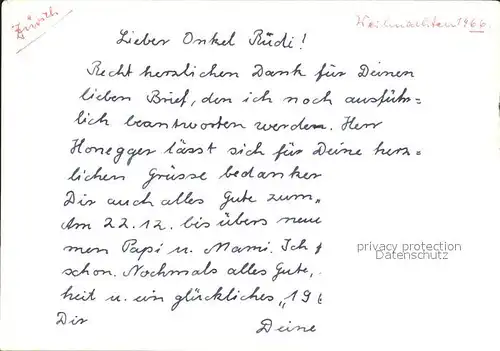 Zürich
Weihnachten 1966.
Lieber Onkel Rüdi!
Recht herzlichen Dank für Deinen
lieben Brief, den ich noch ausführ=
lich beantworten werde. Herr
Honegger lässt sich für Deine herz=
lichen Grüsse bedanken
Dir auch alles Gute zum „
Am 22.12. bis übers neue
men Papi u. Mami. Ich
schon. Nochmals alles Gute,
heit u. ein glückliches „196
Dir
Deine
privacy protection
Datenschutz